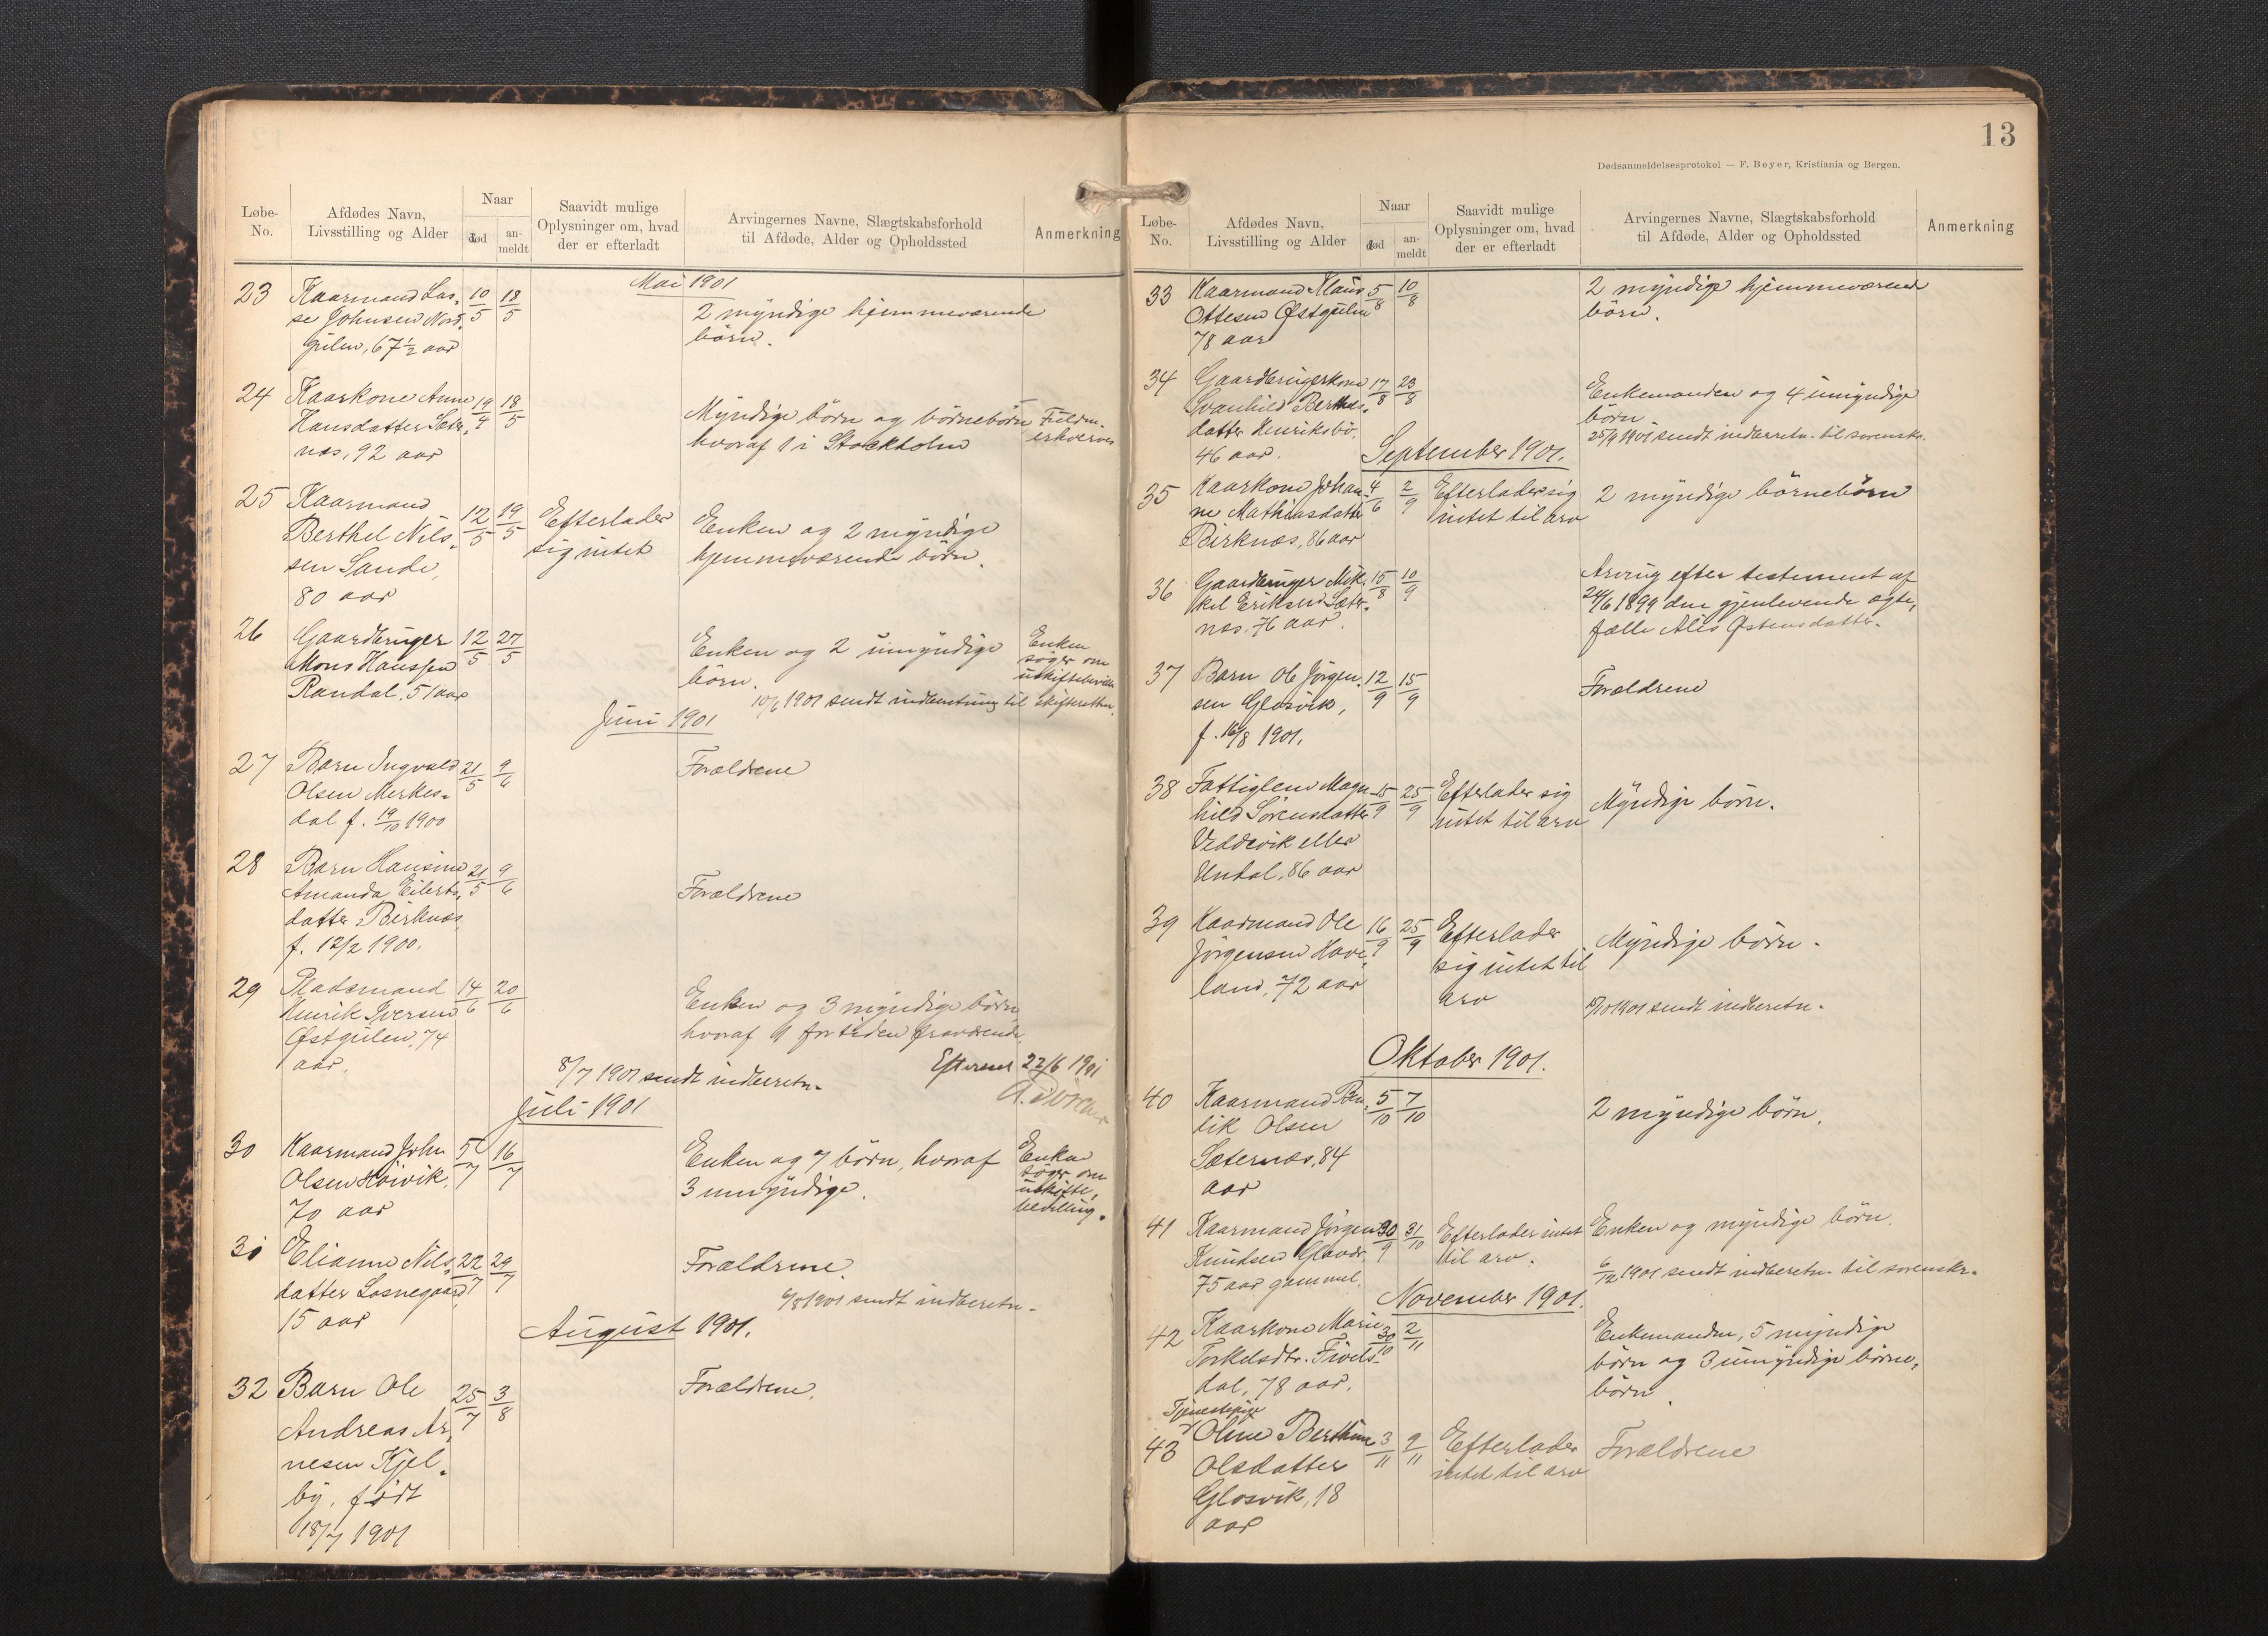 Løbe-
No.
Afdødes Navn,
Livsstilling og Alder
Naar
død
an-
meldt
Saavidt mulige
Oplysninger om, hvad
der er efterladt
Arvingernes Navne, Slægtskabsforhold
til Afdøde, Alder og Opholdssted
Anmerkning
Mai 1901
23 Kaarmand Las- 10/5 18/5
se Johnsen Nord- 2 myndige hjemmeværende
gulen, 67½ aar børn.
24 Kaarkone Anne 19/4 18/5
Hansdatter Sæter- Myndige børn og børnebørn
næs, 92 aar hvoraf 1 i Stockholm
25 Kaarmand
Berthel Nils- 12/5 19/5 Efterlader Enken og 2 myndige
sen Sande, sig intet hjemmeværende børn.
80 aar
26 Gaardbruger 12/5 27/5 Enken og 2 umyndige Enken
Mons Hanssen børn. søger om
Randal, 51 aar 10/6 1901 sendt indberetning til skifteretten.
Juni 1901
27 Barn Ingvald 21/5 9/6 Forældrene
Olsen Merkes-
dal f. 19/10 1900
28 Barn Hansine 21/5 9/6
Amanda Eilerts- Forældrene
datter Birknæs,
f. 12/2 1900.
29 Pladsmand 14/6 20/6 Enken og 3 myndige børn
Henrik Iversen hvoraf 1 for tiden fraværende
Østgulen, 74
aar. 8/7 1901 sendt indberetn. Efterseet 22/6 1901
Juli 1901
30 Kaarmand John 5/7 16/7 Enken og 7 børn, hvoraf Enken
Olsen Høivik, 3 umyndige. søger om
70 aar uskifte-
bevilling.
31 Elianne Nils- 22/7 29/7 Forældrene.
datter Losnegaard,
15 aar 6/8 1901 sendt indberetn.
August 1901.
32 Barn Ole 25/7 3/8 Forældrene.
Andreas Ar-
nesen Kjel-
by, født
18/7 1901
13
Dødsanmeldelsesprotokol — F. Beyer, Kristiania og Bergen.
Løbe-
No.
Afdødes Navn,
Livsstilling og Alder
Naar
død
an-
meldt
Saavidt mulige
Oplysninger om, hvad
der er efterladt
Arvingernes Navne, Slægtskabsforhold
til Afdøde, Alder og Opholdssted
Anmerkning
33 Kaarmand Klaus 5/8 10/8 2 myndige hjemmeværende
Ottesen Østgulen børn.
78 aar
34 Gaardbrugerkone 17/8 23/8 Enkemanden og 4 umyndige
Svanhild Berthes- børn
datter Henriksbø, 25/9 1901 sendt indberetn. til sorenskr.
46 aar.
September 1901.
35 Kaarkone Johan- 4/6 2/9 Efterlader sig 2 myndige børnebørn
ne Mathiasdatter intet til arv
Birknæs, 86 aar
36 Gaardbruger Mik- 15/8 10/9 Arving efter testement af
kel Eriksen Sæter- 24/6 1899 den gjenlevende ægte-
næs. 76 aar. fælle Alis Østensdatter.
37 Barn Ole Jørgen- 12/9 15/9 Forældrene
sen Glosvik,
f. 16/8 1901.
38 Fattiglem Magn- 15/9 25/9 Efterlader sig Myndige børn.
hild Sørensdatter intet til arv
Veddevik eller
Undal, 86 aar
39 Kaarmand Ole 16/9 25/9 Efterlader Myndige børn.
Jørgensen Have- sig intet til
land, 72 aar arv
sendt indberetn.
Oktober 1901.
40 Kaarmand Ben- 5/10 7/10 2 myndige børn.
dik Olsen
Sæternæs, 84
aar
41 Kaarmand Jørgen 30/9 31/10 Efterlader intet Enken og myndige børn.
Knudsen til arv.
75 aar gammel. 6/12 1901 sendt indberetn. til sorenskr.
November 1901.
42 Kaarkone Marie 30/10 2/11 Enkemanden, 5 myndige
Torkelsdtr. børn og 3 umyndige børne-
dal, 78 aar. børn.
Tjenestepige
43 Oline Berthine 3/11 9/11 Efterlader Forældrene
Olsdatter intet til arv
Glosvik, 18
aar